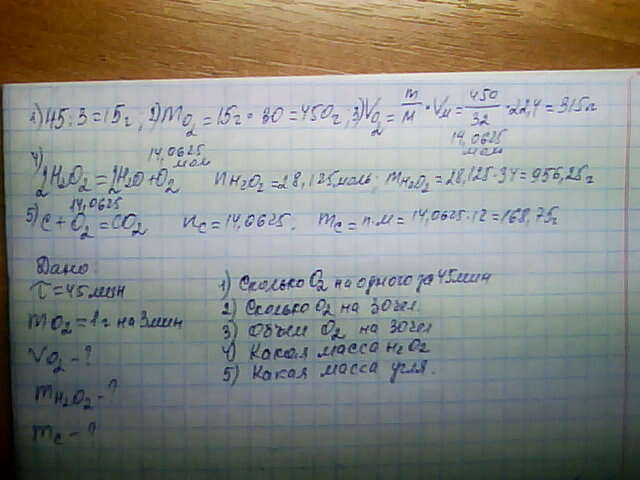 1) 45:3=15г; 2) mO2=15г·30=450г; 3) VO2 = m/M · Vм = 450/32 · 22,4 = 315л
14,0625 моль
4) 14,0625 моль
2H2O2=2H2O+O2 nH2O2=28,125моль; mH2O2=28,125·34=956,25г
14,0625
5) C+O2=CO2 nC=14,0625, mC=n·M=14,0625·12=168,75г
Дано:
τ=45мин
mO2=1г на 3мин
VO2-?
mH2O2-?
mC-?
1) Сколько O2 на одного за 45мин
2) Сколько O2 на 30чел.
3) Объём O2 на 30чел
4) Какая масса H2O2
5) Какая масса угля.